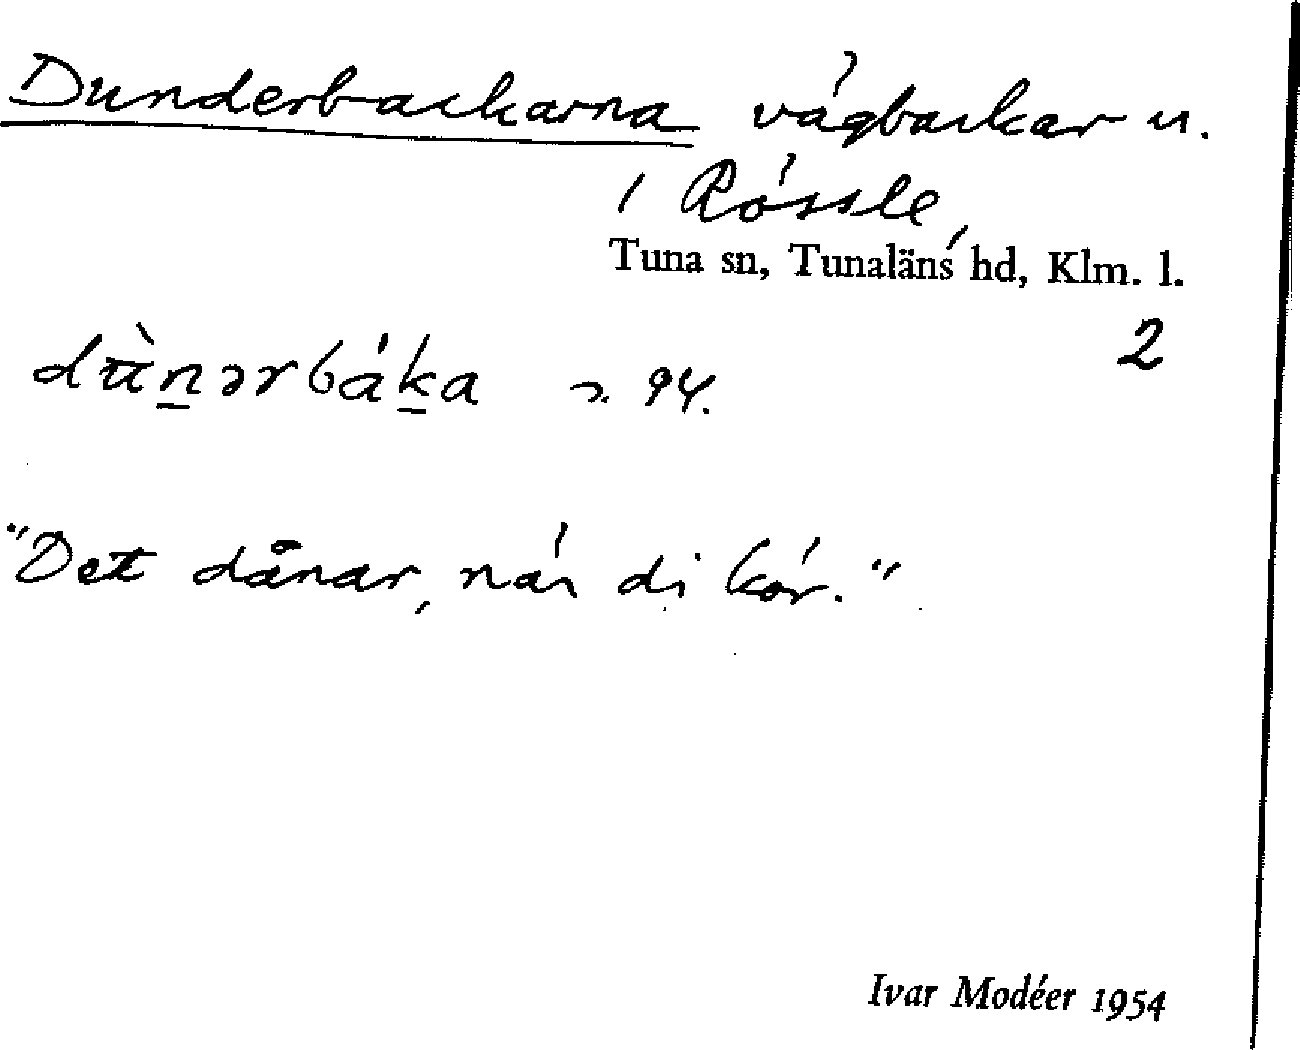 Dunderbackarna vägbackar n.
i Rössle,
Tuna sn, Tunaläns hd, Klm. l.
2
94.
"Det dånar, när di kör."
Ivar Modéer 1954